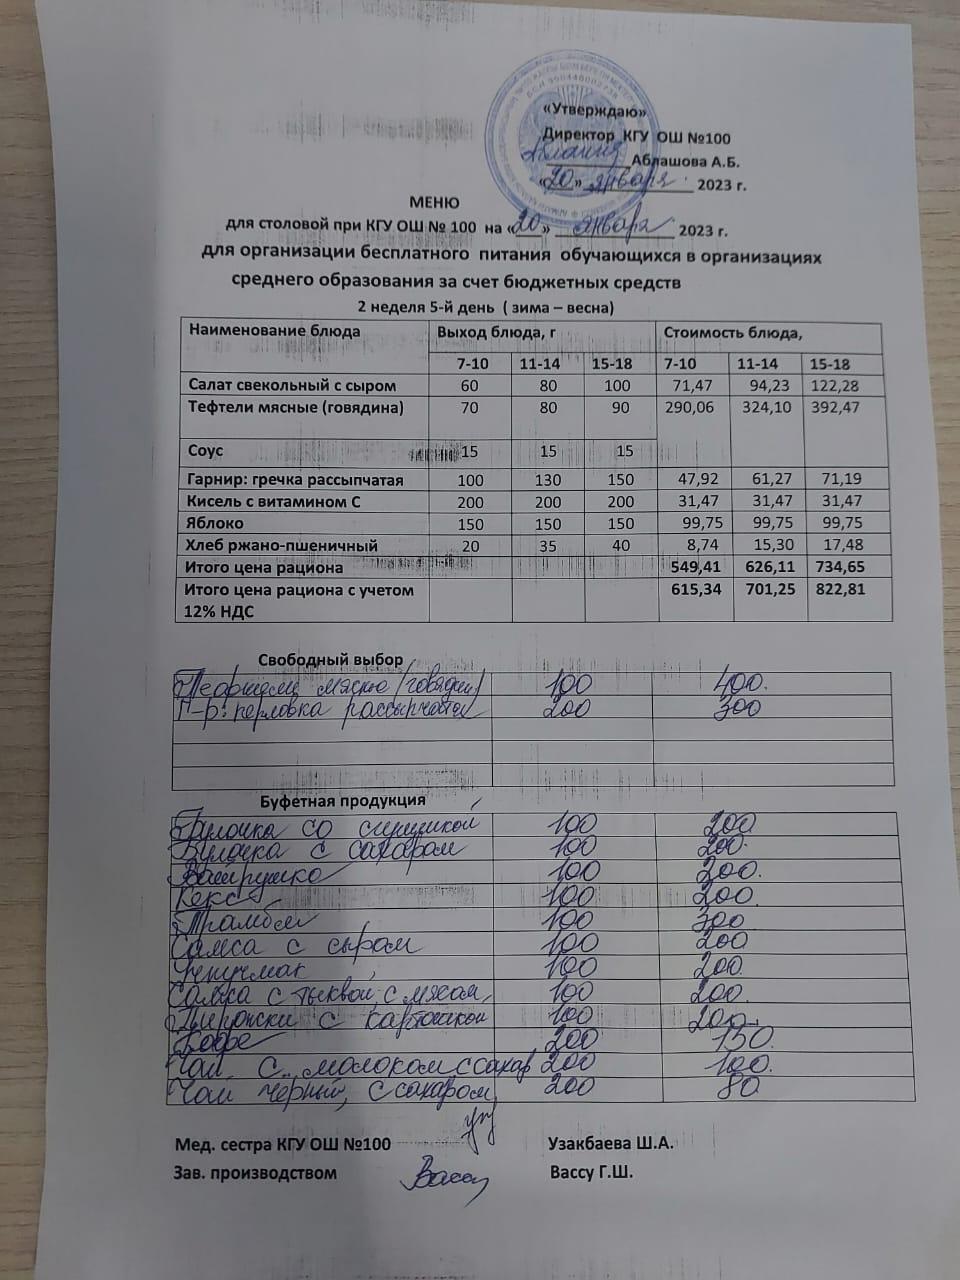 «Утверждаю»
Директор КГУ ОШ №100
Аблашова А.Б.
«20» января 2023 г.
МЕНЮ
для столовой при КГУ ОШ № 100 на «20» января 2023 г.
для организации бесплатного питания обучающихся в организациях
среднего образования за счет бюджетных средств
2 неделя 5-й день ( зима – весна)
Наименование блюда Выход блюда, г Стоимость блюда,
7-10 11-14 15-18 7-10 11-14 15-18
Салат свекольный с сыром 60 80 100 71,47 94,23 122,28
Тефтели мясные (говядина) 70 80 90 290,06 324,10 392,47
Соус 15 15 15
Гарнир: гречка рассыпчатая 100 130 150 47,92 61,27 71,19
Кисель с витамином С 200 200 200 31,47 31,47 31,47
Яблоко 150 150 150 99,75 99,75 99,75
Хлеб ржано-пшеничный 20 35 40 8,74 15,30 17,48
Итого цена рациона 549,41 626,11 734,65
Итого цена рациона с учетом 615,34 701,25 822,81
12% НДС
Свободный выбор
100 400.
Г-р: перловка рассыпчатая 200 300
Буфетная продукция
Булочка со 100 200
Булочка с сахаром 100 200.
100 200.
Кекс 100 200.
100 300
Самса с сыром 100 200
100 200.
Самса с тыквой, с мясом, 100 200.
с картошкой 100 200
Кофе 200 150.
Чай с молоком с сахар 200 100.
Чай черный, с сахаром, 200 80
Мед. сестра КГУ ОШ №100 Узакбаева Ш.А.
Зав. производством Вассу Вассу Г.Ш.